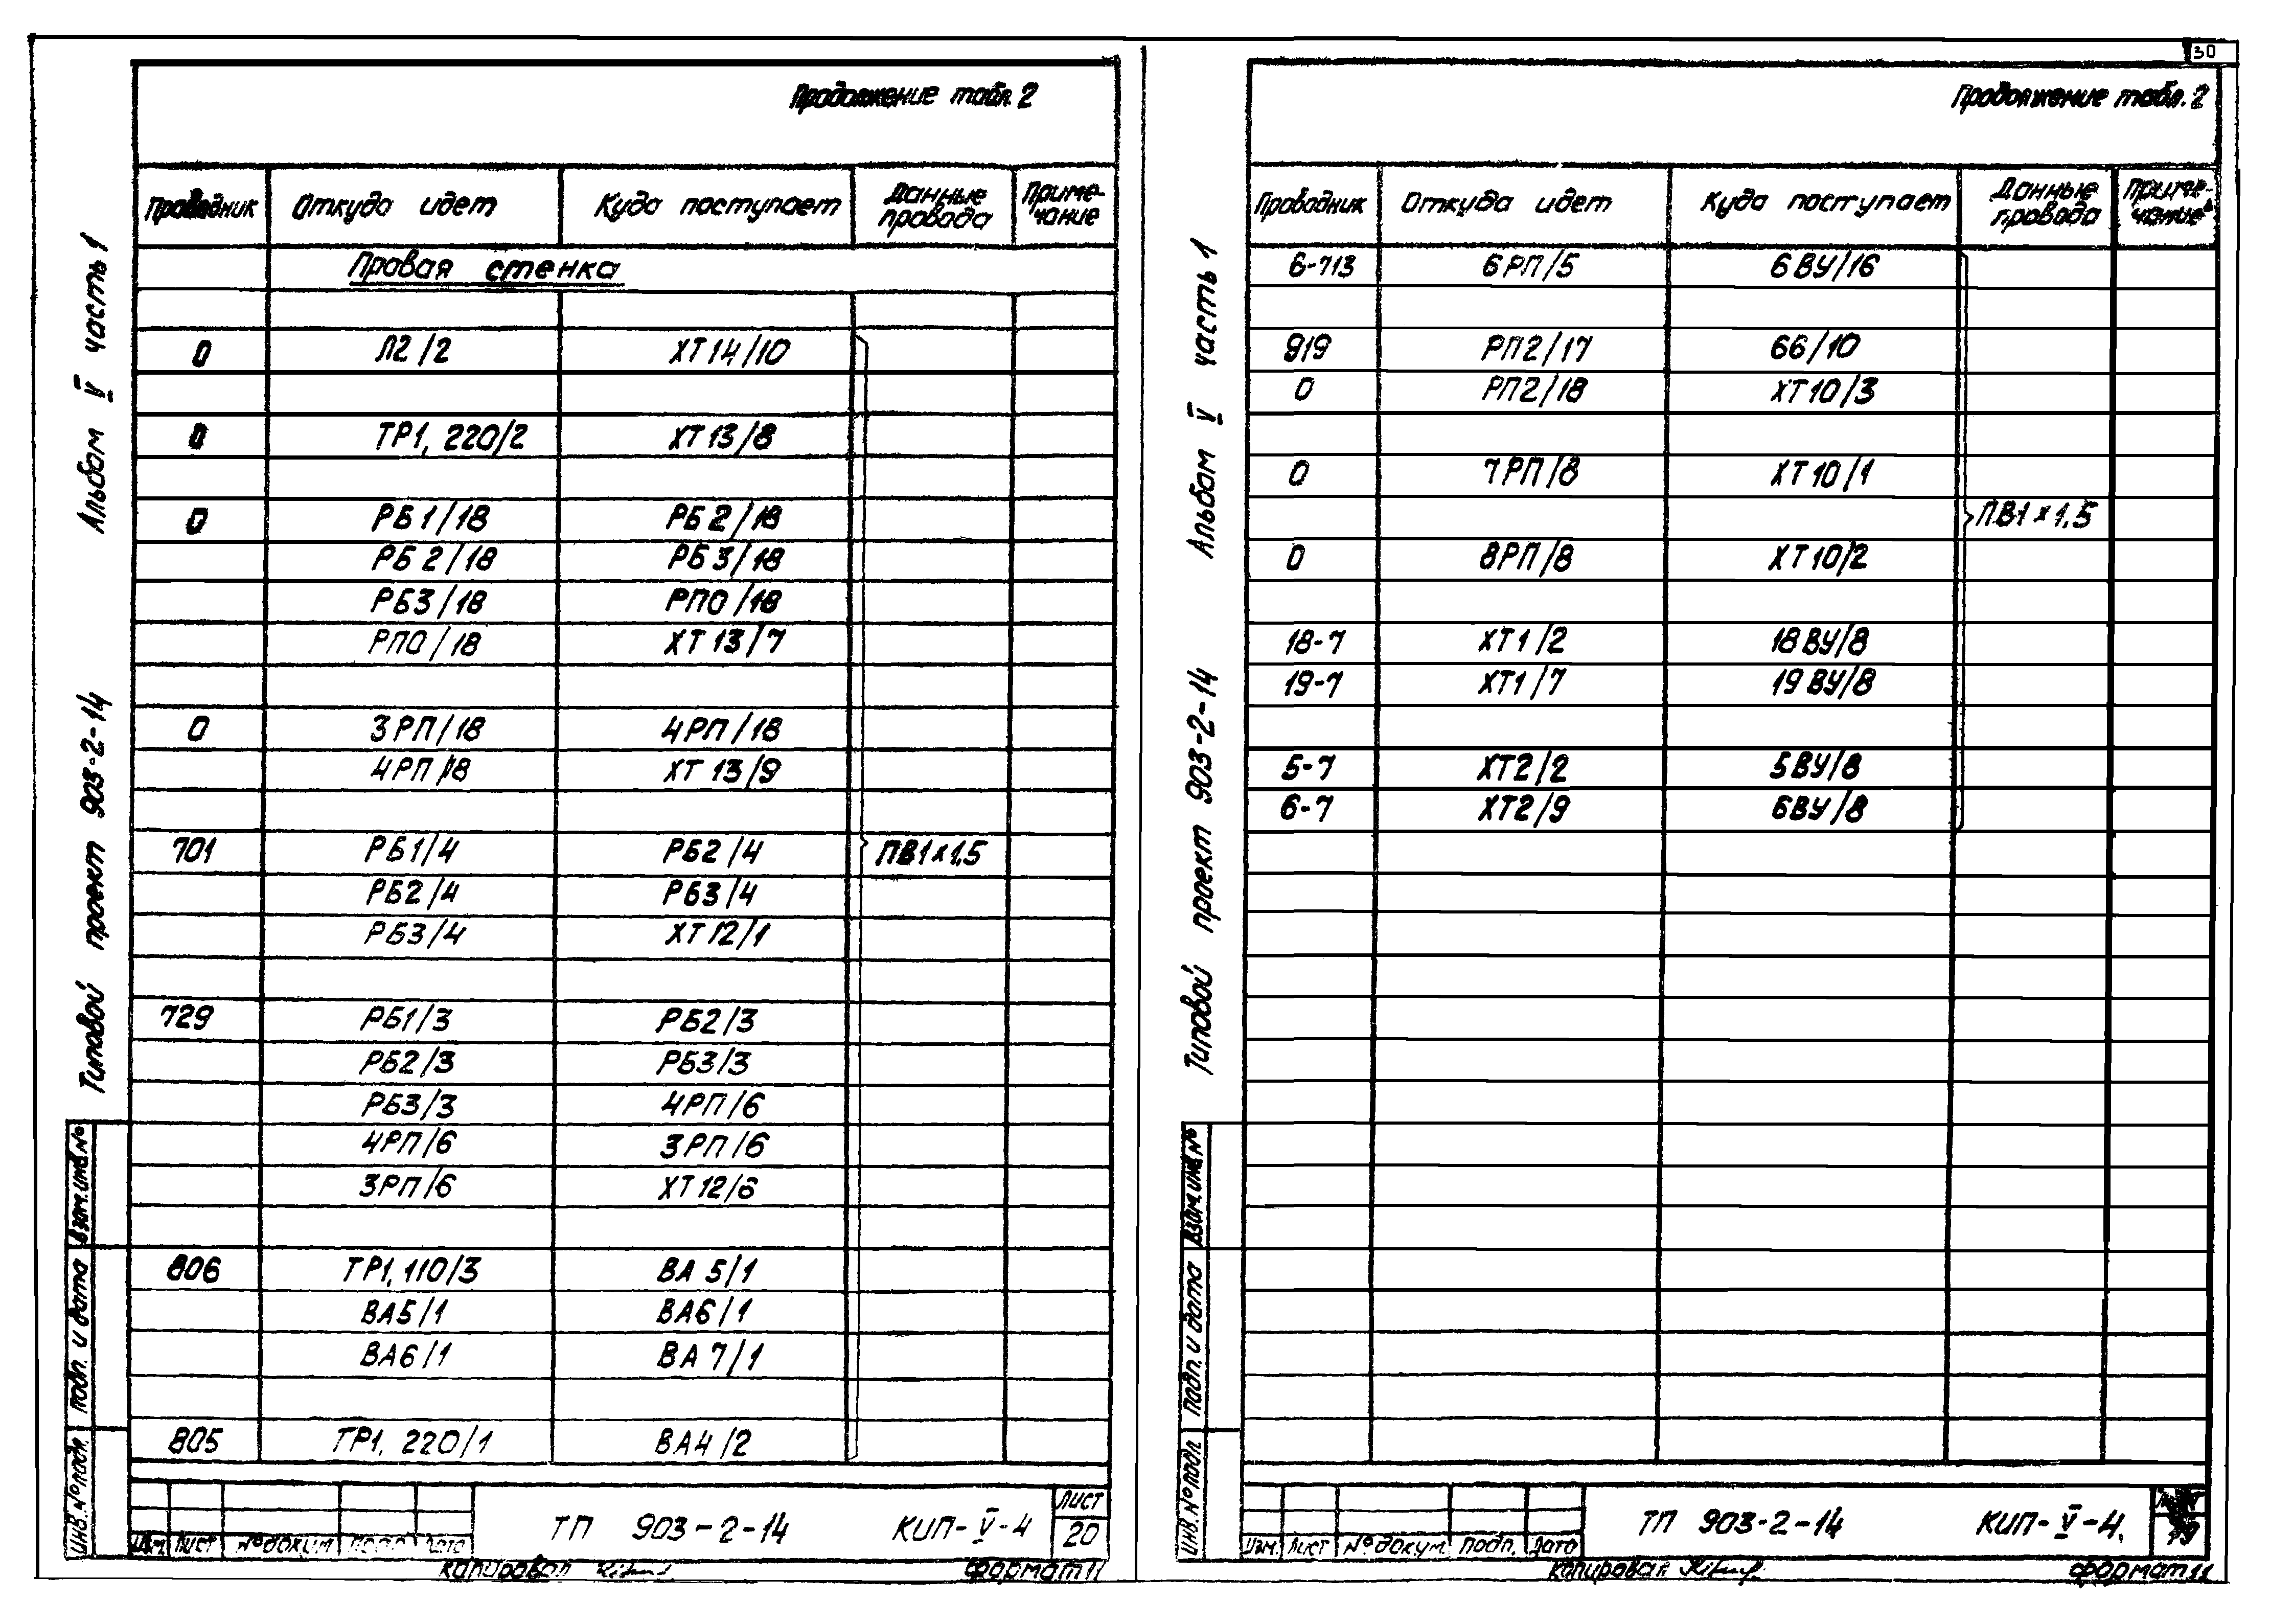 30
Продолжение табл. 2
Проводник Откуда идет Куда поступает Данные провода Приме-чание
Правая стенка
0 Л2/2 ХТ14/10
0 ТР1, 220/2 ХТ13/8
0 РБ1/18 РБ2/18
РБ2/18 РБ3/18
РБ3/18 РП0/18
РП0/18 ХТ13/7
0 3РП/18 4РП/18
4РП/18 ХТ13/9
701 РБ1/4 РБ2/4 ПВ1х1,5
РБ2/4 РБ3/4
РБ3/4 ХТ12/1
729 РБ1/3 РБ2/3
РБ2/3 РБ3/3
РБ3/3 4РП/6
4РП/6 3РП/6
3РП/6 ХТ12/6
806 ТР1, 110/3 ВА5/1
ВА5/1 ВА6/1
ВА6/1 ВА7/1
805 ТР1, 220/1 ВА4/2
Изм. Лист № докум. Подп. Дата
ТП 903-2-14 КИП-V-4
Лист
20
Копировал
Формат 11
Типовой проект 903-2-14 Альбом V часть 1
Инв. № подл. Подп. и дата Взам. инв. №
Продолжение табл. 2
Проводник Откуда идет Куда поступает Данные провода Приме-чание
6-713 6РП/5 6ВУ/16
919 РП2/17 66/10
0 РП2/18 ХТ10/3
0 7РП/8 ХТ10/1
ПВ1х1.5
0 8РП/8 ХТ10/2
18-7 ХТ1/2 18ВУ/8
19-7 ХТ1/7 19ВУ/8
5-7 ХТ2/2 5ВУ/8
6-7 ХТ2/9 6ВУ/8
Изм. Лист № докум. Подп. Дата
ТП 903-2-14 КИП-V-4
Копировал
Формат 11
Типовой проект 903-2-14 Альбом V часть 1
Инв. № подл. Подп. и дата Взам. инв. №